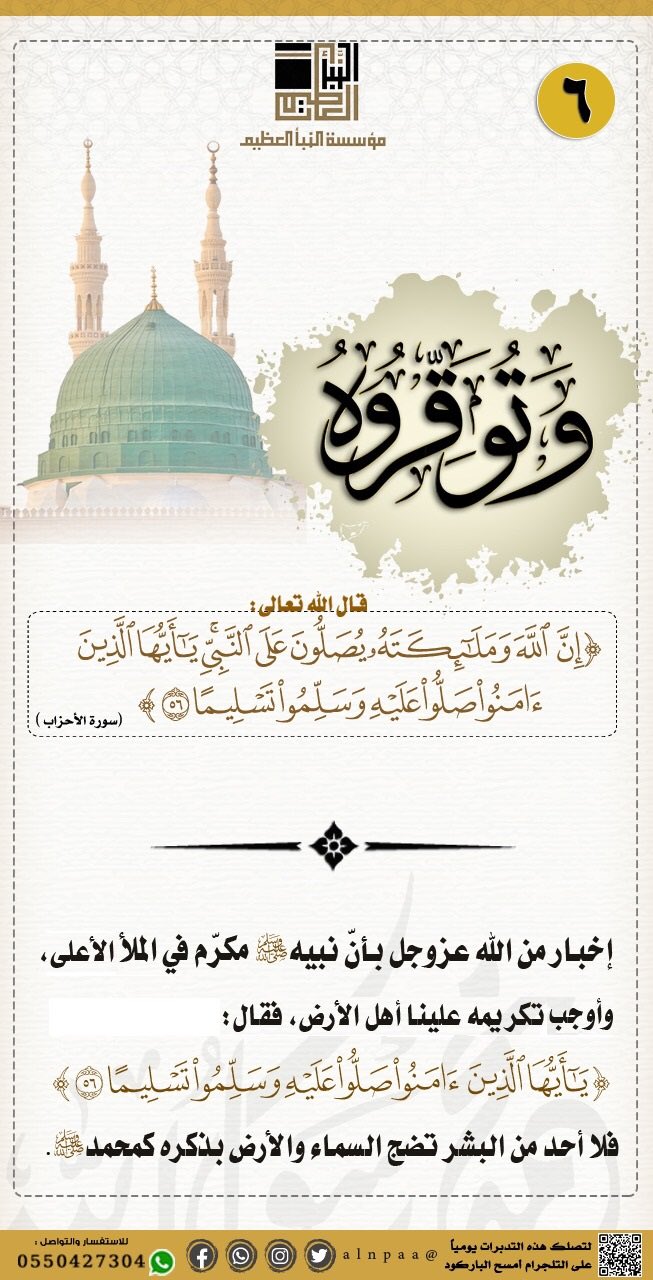 النبأ العظيم
مؤسسة النبأ العظيم
٦
وَتُوَقِّرُوهُ
قال الله تعالى:
﴿إِنَّ ٱللَّهَ وَمَلَٰٓئِكَتَهُۥ يُصَلُّونَ عَلَى ٱلنَّبِيِّۚ يَٰٓأَيُّهَا ٱلَّذِينَ
ءَامَنُواْ صَلُّواْ عَلَيْهِ وَسَلِّمُواْ تَسْلِيمًا ٥٦﴾
(سورة الأحزاب)
إخبار من الله عزوجل بأنّ نبيه ﷺ مكرّم في الملأ الأعلى،
وأوجب تكريمه علينا أهل الأرض، فقال:
﴿يَٰٓأَيُّهَا ٱلَّذِينَ ءَامَنُواْ صَلُّواْ عَلَيْهِ وَسَلِّمُواْ تَسْلِيمًا ٥٦﴾
فلا أحد من البشر تضج السماء والأرض بذكره كمحمد ﷺ.
لتصلك هذه التدبرات يومياً
على التلجرام امسح الباركود
@alnpaa
للاستفسار والتواصل :
0550427304